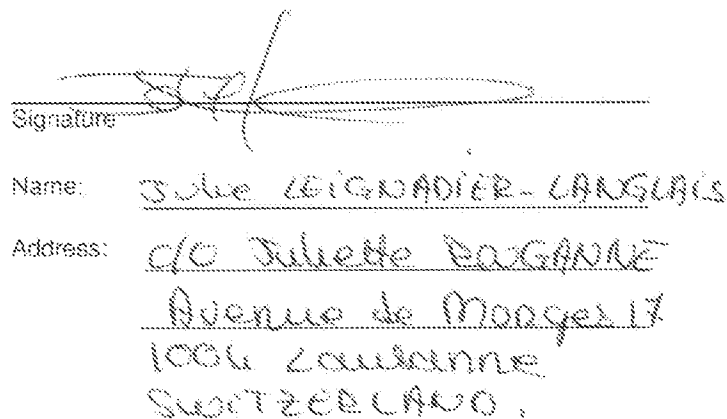 Signature
Name: Julie LEIGNADIER-LANGLAIS
Address: c/o Juliette
Avenue de Morges 17
1004 Lausanne
SWITZERLAND.